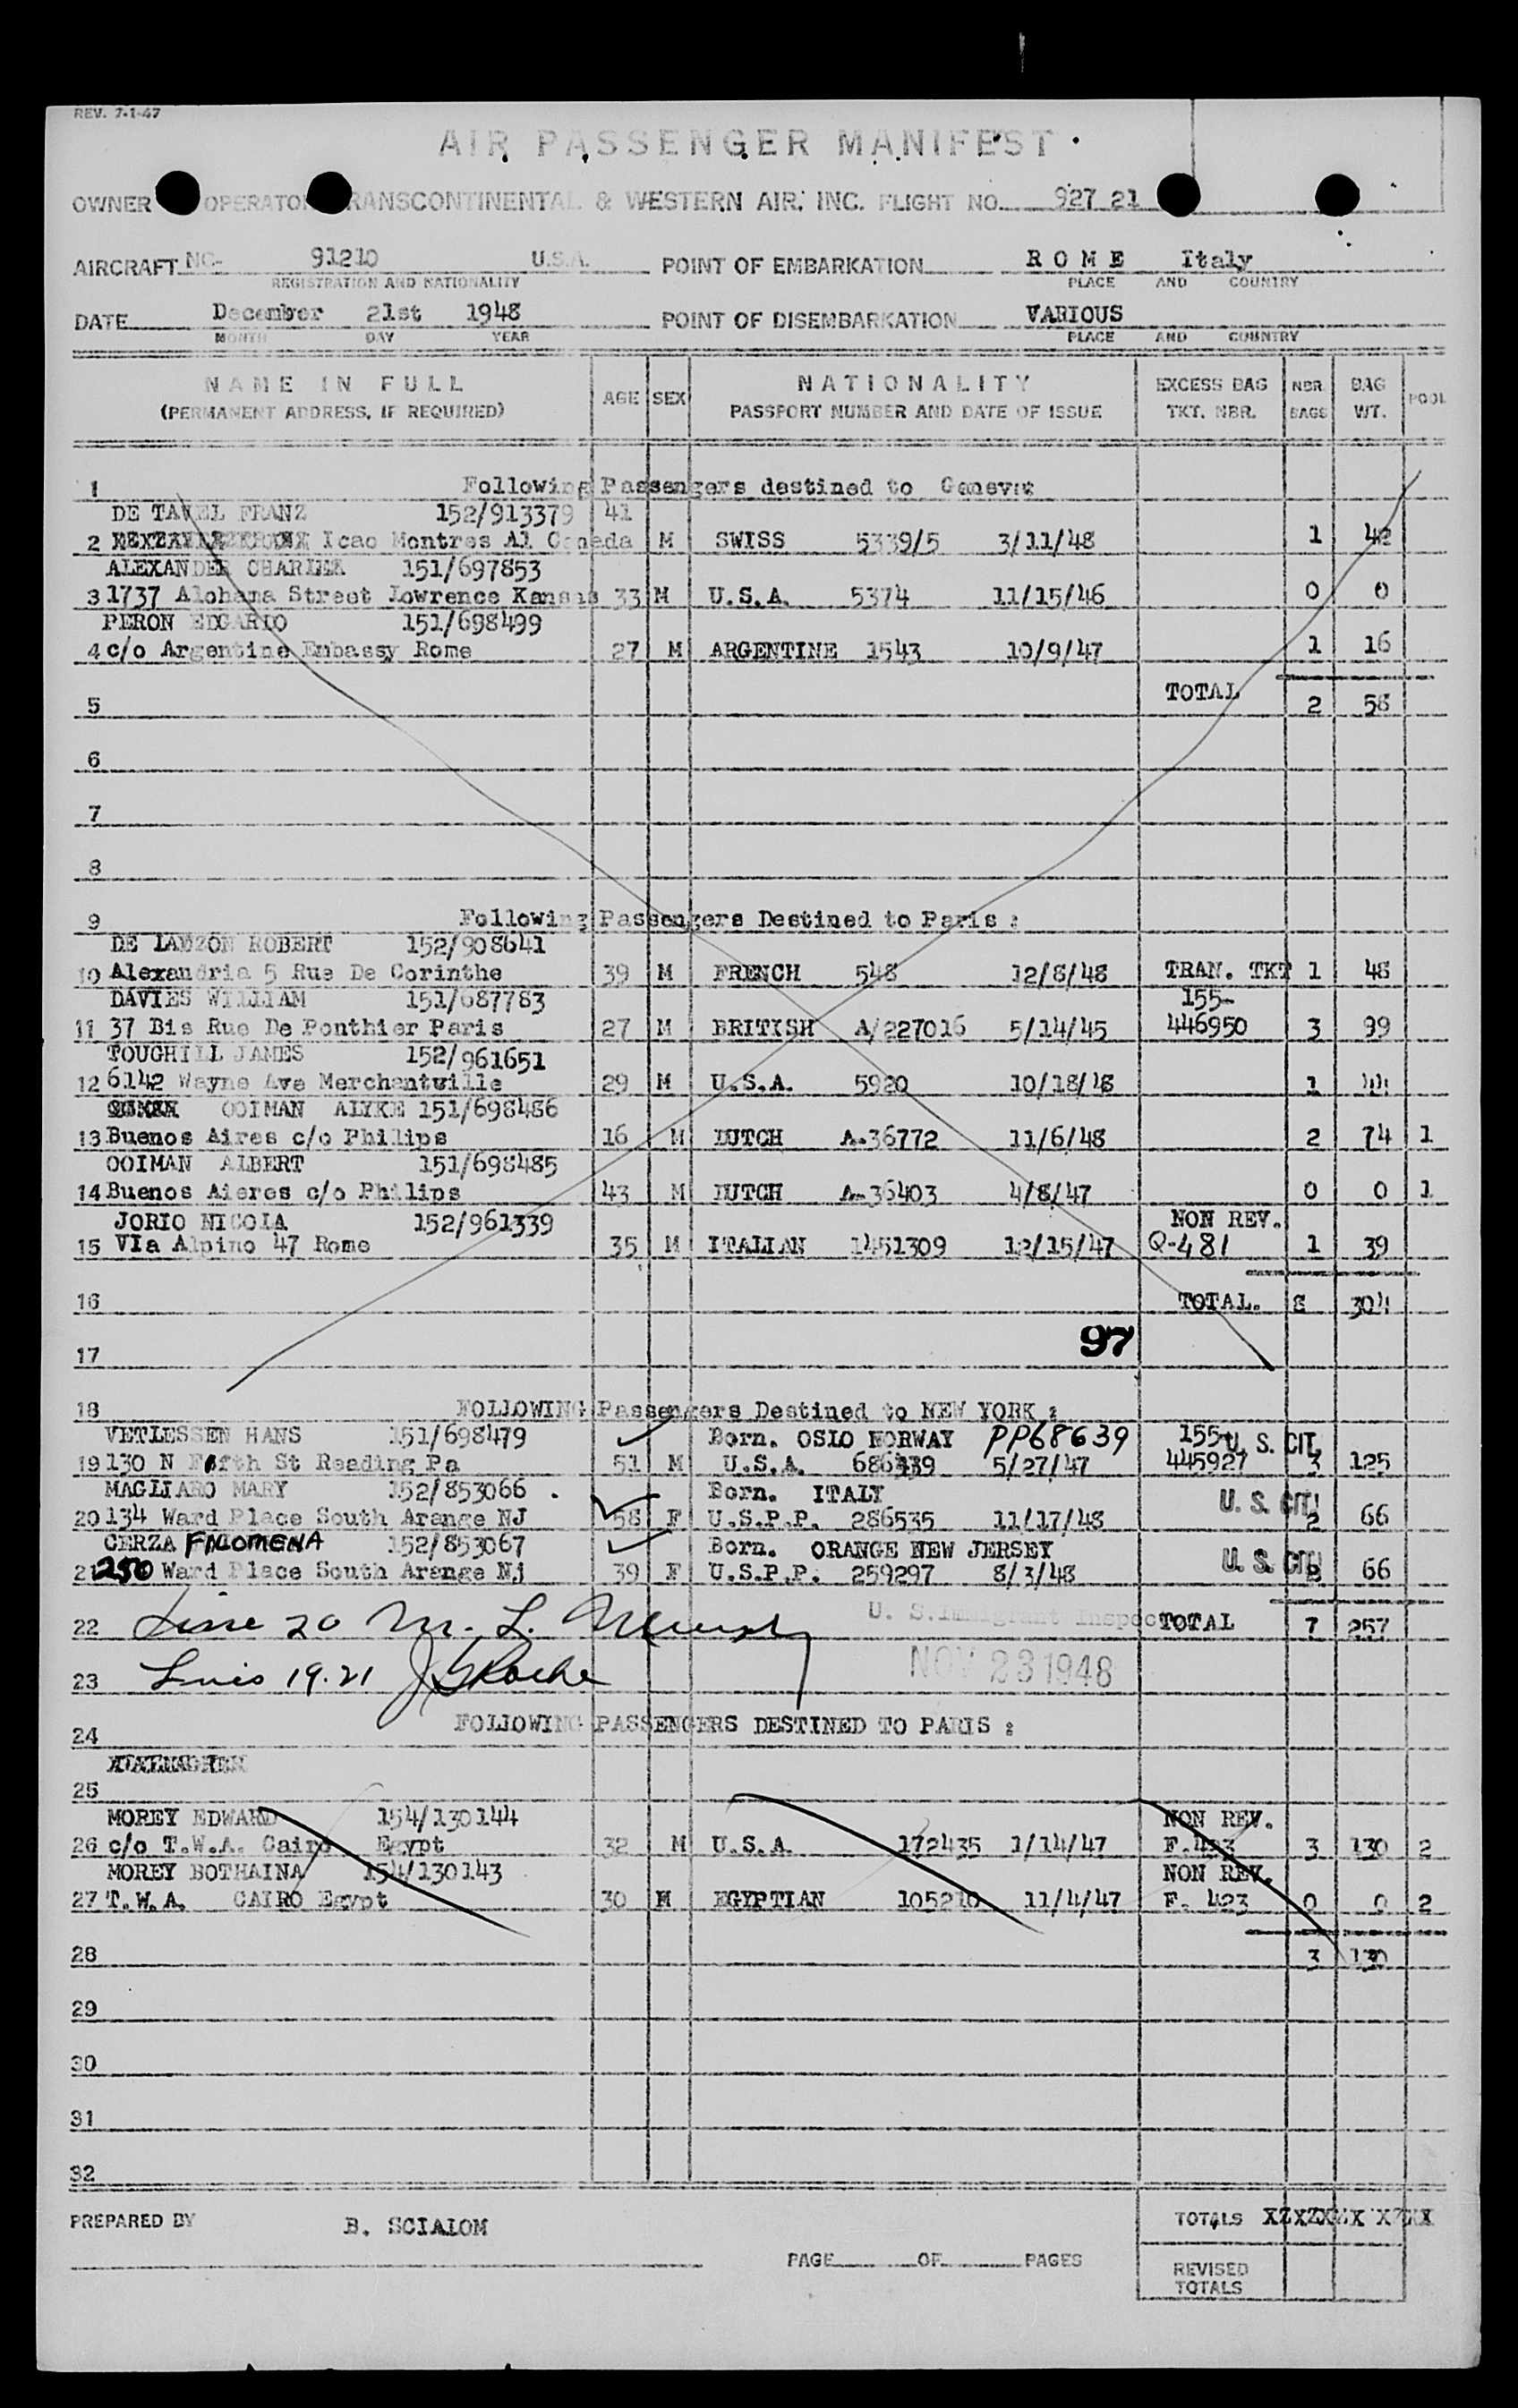 REV. 7-1-47
AIR PASSENGER MANIFEST
OWNER OPERATOR TRANSCONTINENTAL & WESTERN AIR, INC. FLIGHT NO. 927 21
AIRCRAFT NC- 91210 U.S.A. POINT OF EMBARKATION R O M E Italy
REGISTRATION AND NATIONALITY PLACE AND COUNTRY
DATE December 21st 1948 POINT OF DISEMBARKATION VARIOUS
MONTH DAY YEAR PLACE AND COUNTRY
NAME IN FULL AGE SEX NATIONALITY EXCESS BAG NBR. BAG POOL
(PERMANENT ADDRESS, IF REQUIRED) PASSPORT NUMBER AND DATE OF ISSUE TKT. NBR. BAGS WT.
1 Following Passengers destined to Geneva:
DE TAVEL FRANZ 152/913379 41
2 Icao Montres Al Canada M SWISS 5339/5 3/11/48 1 42
ALEXANDER CHARLES 151/697853
3 1737 Alobama Street Lowrence Kansas 33 M U.S.A. 5374 11/15/46 0 0
PERON EDGARDO 151/698499
4 c/o Argentine Embassy Rome 27 M ARGENTINE 1543 10/9/47 1 16
TOTAL
5 2 58
6
7
8
9 Following Passengers Destined to Paris :
DE LAUZON ROBERT 152/908641
10 Alexandria 5 Rue De Corinthe 39 M FRENCH 548 12/8/48 TRAN. TKT 1 48
DAVIES WILLIAM 151/687783 155-
11 37 Bis Rue De Ponthier Paris 27 M BRITISH A/227016 5/14/45 446950 3 99
TOUGHILL JAMES 152/961651
12 6142 Wayne Ave Merchantville 29 M U.S.A. 5920 10/18/48 1 44
OOIMAN ALYKE 151/698486
13 Buenos Aires c/o Philips 16 M DUTCH A-36772 11/6/48 2 74 1
OOIMAN ALBERT 151/698485
14 Buenos Aieres c/o Philips 43 M DUTCH A-36403 4/8/47 0 0 1
JORIO NICOLA 152/961339 NON REV.
15 VIa Alpino 47 Rome 35 M ITALIAN 1451309 12/15/47 Q-481 1 39
16 TOTAL. 8 304
97
17
18 FOLLOWING Passengers Destined to NEW YORK :
VETLESSEN HANS 151/698479 Born. OSLO NORWAY PP68639 155- U. S. CIT.
19 130 N Fifth St Reading Pa 51 M U.S.A. 686439 5/27/47 445927 3 125
MAGLIARO MARY 152/853066 . Born. ITALY U. S. CIT.
20 134 Ward Place South Arange NJ 58 F U.S.P.P. 286535 11/17/48 2 66
CERZA FILOMENA 152/853067 Born. ORANGE NEW JERSEY U. S. CIT.
21 250 Ward Place South Arange Nj 39 F U.S.P.P. 259297 8/3/48 2 66
22 Line 20 M. L. U. S. Immigrant Inspec TOTAL 7 257
23 Lines 19.21 J G Roche NOV 23 1948
24 FOLLOWING PASSENGERS DESTINED TO PARIS :
25
MOREY EDWARD 154/130144 NON REV.
26 c/o T.W.A. Cairo Egypt 32 M U.S.A. 172435 1/14/47 F.423 3 130 2
MOREY BOTHAINA 154/130143 NON REV.
27 T.W.A. CAIRO Egypt 30 M EGYPTIAN 105210 11/4/47 F. 423 0 0 2
28 3 130
29
30
31
32
PREPARED BY B. SCIALOM TOTALS
PAGE OF PAGES REVISED
TOTALS